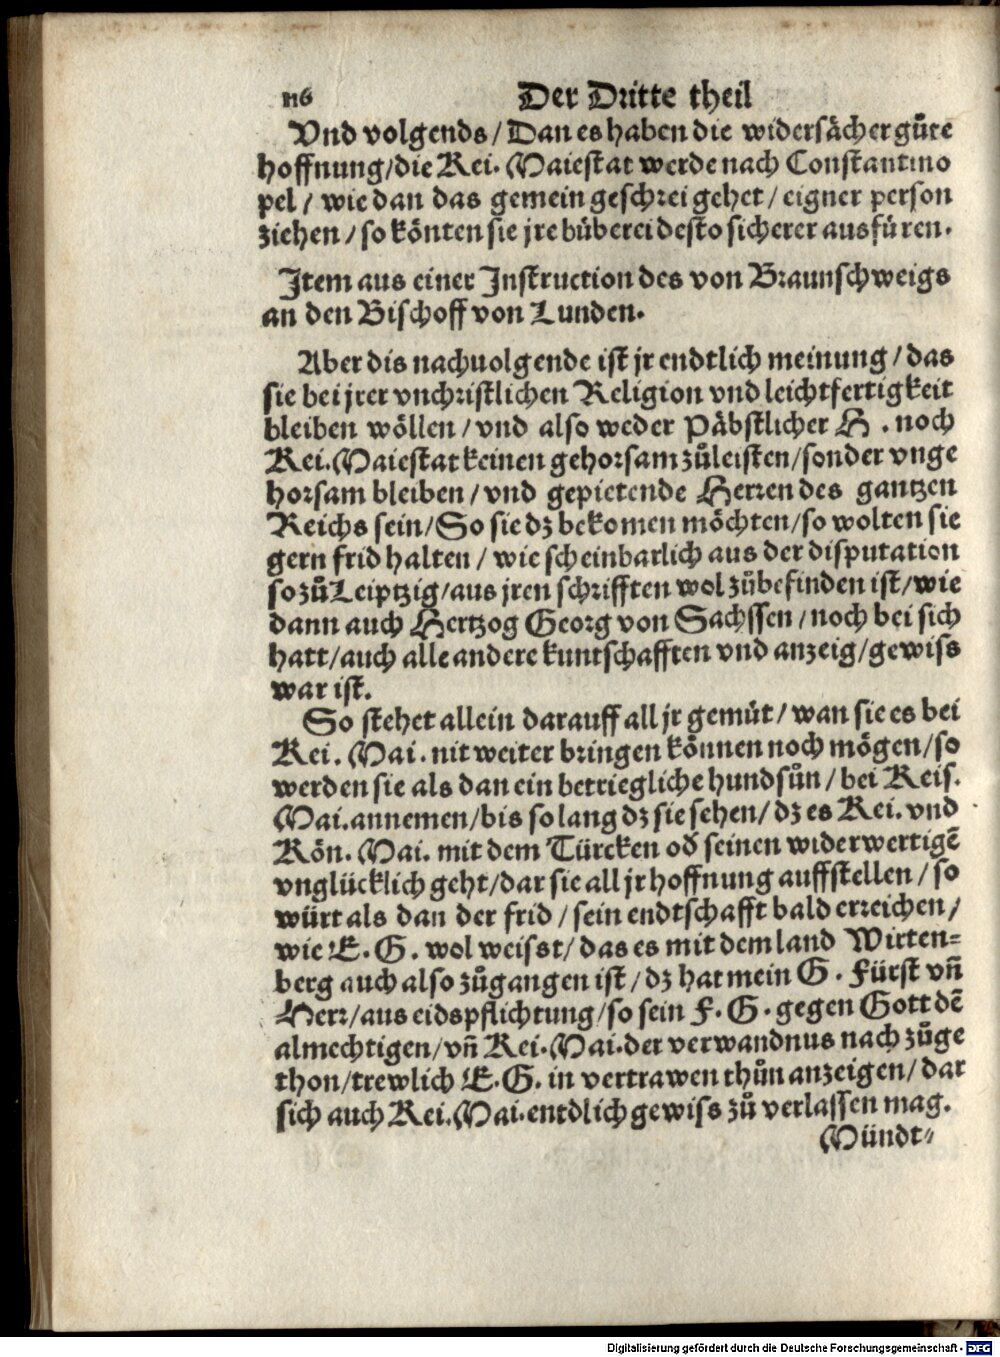 116 Der Dritte theil
Vnd volgends / Dan es haben die widersächer gůte
hoffnung/die Kei. Maiestat werde nach Constantino
pel / wie dan das gemein geschrei gehet / eigner person
ziehen / so könten sie jre büberei desto sicherer ausfüren.
Item aus einer Instruction des von Braunschweigs
an den Bischoff von Lunden.
Aber dis nachuolgende ist jr endtlich meinung / das
sie bei jrer vnchristlichen Religion vnd leichtfertigkeit
bleiben wöllen / vnd also weder Päbstlicher H . noch
Kei. Maiestat keinen gehorsam zůleisten/sonder vnge
horsam bleiben / vnd gepietende Herren des gantzen
Reichs sein/So sie dz bekomen möchten/so wolten sie
gern frid halten / wie scheinbarlich aus der disputation
so zů Leiptzig/aus jren schrifften wol zůbefinden ist/wie
dann auch Hertzog Georg von Sachssen / noch bei sich
hatt/auch alle andere kuntschafften vnd anzeig/gewiss
war ist.
So stehet allein darauff all jr gemüt / wan sie es bei
Kei. Mai. nit weiter bringen können noch mögen/so
werden sie als dan ein betriegliche hundsůn / bei Keis.
Mai.annemen/bis so lang dz sie sehen/ dz es Kei. vnd
Kön. Mai. mit dem Türcken od̕ seinen widerwertigẽ
vnglücklich geht/dar sie all jr hoffnung auffstellen / so
würt als dan der frid / sein endtschafft bald erreichen /
wie E. G. wol weisst/ das es mit dem land Wirten=
berg auch also zůgangen ist / dz hat mein G. Fürst vñ
Herr/aus eidspflichtung/so sein F. G. gegen Gott dẽ
almechtigen/vñ Kei. Mai. der verwandnus nach zůge
thon/trewlich E. G. in vertrawen thůn anzeigen/ dar
sich auch Kei. Mai. entdlich gewiss zů verlassen mag.
Mündt=
Digitalisierung gefördert durch die Deutsche Forschungsgemeinschaft - DFG